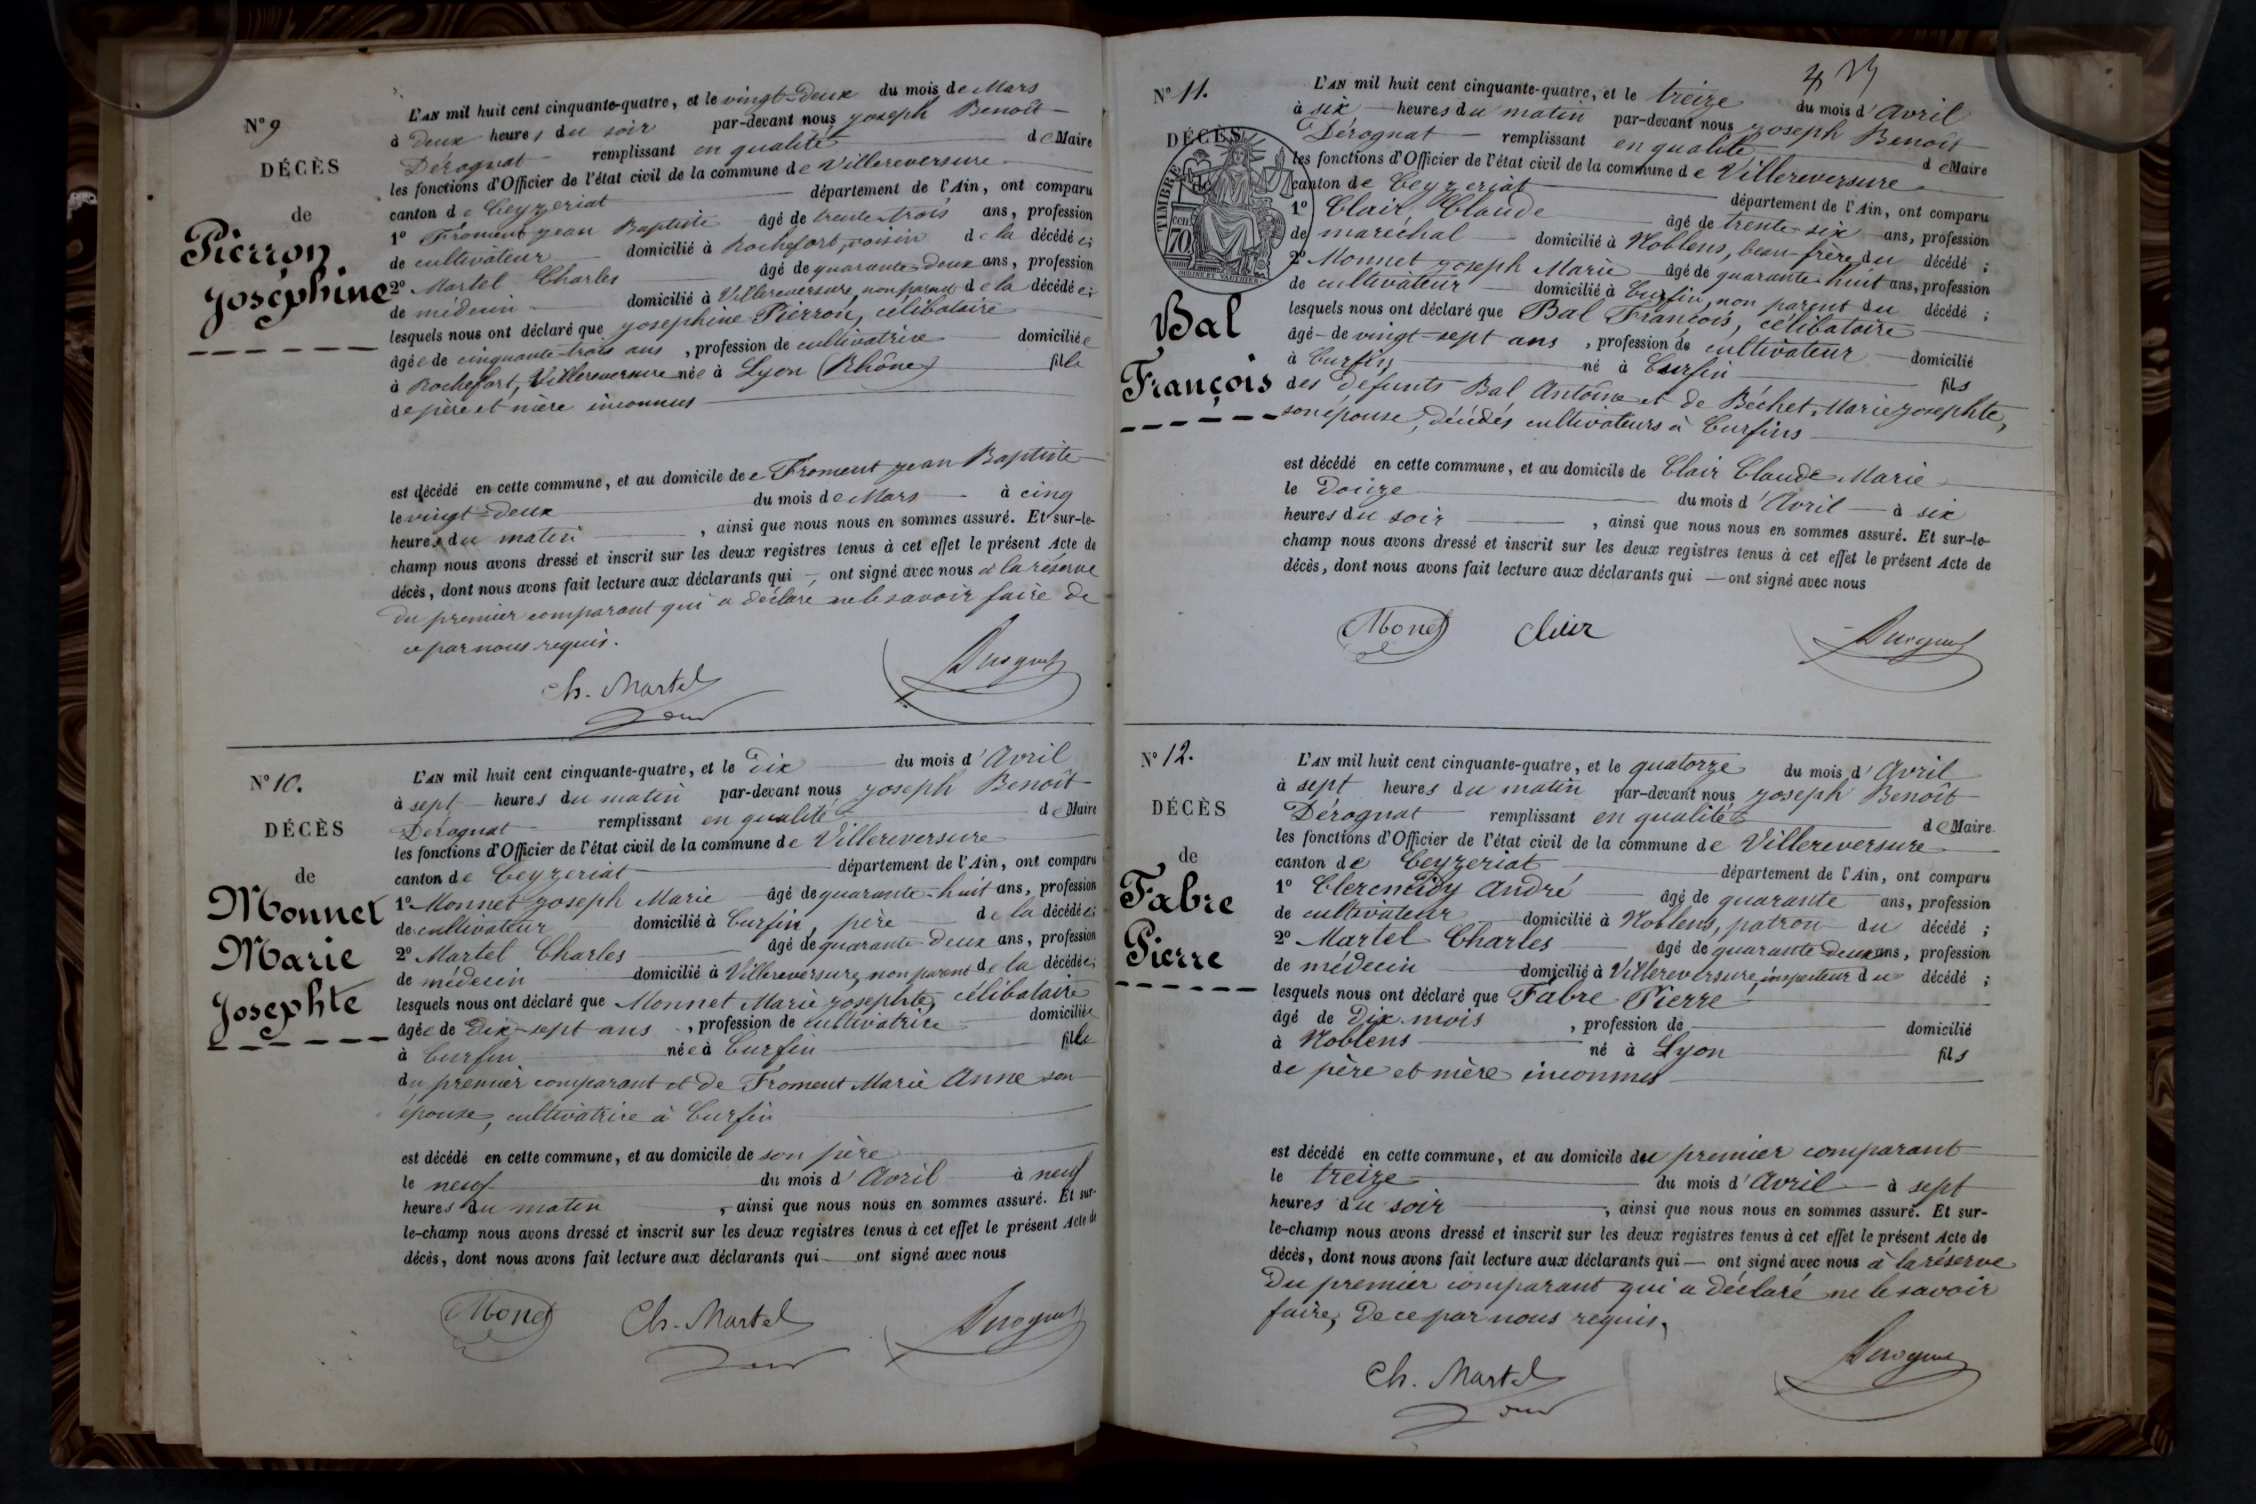 N° 9
DÉCÈS
de
Pierron
Joséphine
L'AN mil huit cent cinquante-quatre, et le vingt-deux du mois de Mars
à deux heures du soir par-devant nous Joseph Benoît
Dérognat remplissant en qualité de Maire
les fonctions d'Officier de l'état civil de la commune de Villereversure
canton de Ceyzeriat département de l'Ain, ont comparu
1° Froment Jean Baptiste âgé de trente-trois ans, profession
de cultivateur domicilié à Rochefort, voisin de la décédée;
2° Martel Charles âgé de quarante-deux ans, profession
de médecin domicilié à Villereversure, non parent de la décédée;
lesquels nous ont déclaré que Josephine Pierron, célibataire
âgée de cinquante-trois ans, profession de cultivatrice domiciliée
à Rochefort, Villereversure née à Lyon (Rhône) fille
de père et mère inconnus
est décédé en cette commune, et au domicile de Froment Jean Baptiste
le vingt-deux du mois de Mars à cinq
heures du matin, ainsi que nous nous en sommes assuré. Et sur-le-
champ nous avons dressé et inscrit sur les deux registres tenus à cet effet le présent Acte de
décès, dont nous avons fait lecture aux déclarants qui ont signé avec nous à la réserve
du premier comparant qui a déclaré ne le savoir faire de
ce par nous requis.
Ch. Martel Derognat
N° 10.
DÉCÈS
de
Monnet
Marie
Josephte
L'AN mil huit cent cinquante-quatre, et le dix du mois d'Avril
à sept heures du matin par-devant nous Joseph Benoît
Dérognat remplissant en qualité de Maire
les fonctions d'Officier de l'état civil de la commune de Villereversure
canton de Ceyzeriat département de l'Ain, ont comparu
1° Monnet Joseph Marie âgé de quarante-huit ans, profession
de cultivateur domicilié à Curfin, père de la décédée;
2° Martel Charles âgé de quarante-deux ans, profession
de médecin domicilié à Villereversure, non parent de la décédée;
lesquels nous ont déclaré que Monnet Marie Josephte, célibataire
âgée de dix-sept ans, profession de cultivatrice domiciliée
à Curfin née à Curfin fille
du premier comparant et de Froment Marie Anne son
épouse, cultivatrice à Curfin
est décédé en cette commune, et au domicile de son père
le neuf du mois d'Avril à neuf
heures du matin, ainsi que nous nous en sommes assuré. Et sur-
le-champ nous avons dressé et inscrit sur les deux registres tenus à cet effet le présent Acte de
décès, dont nous avons fait lecture aux déclarants qui ont signé avec nous
Monet Ch. Martel Derognat
N° 11.
DÉCÈS
TIMBRE
70
Bal
François
L'AN mil huit cent cinquante-quatre, et le treize du mois d'Avril
à six heures du matin par-devant nous Joseph Benoît
Dérognat remplissant en qualité de Maire
les fonctions d'Officier de l'état civil de la commune de Villereversure
canton de Ceyzeriat département de l'Ain, ont comparu
1° Clair Claude âgé de trente-six ans, profession
de maréchal domicilié à Noblens, beau-frère du décédé;
2° Monnet Joseph Marie âgé de quarante-huit ans, profession
de cultivateur domicilié à Curfin, non parent du décédé;
lesquels nous ont déclaré que Bal François, célibataire
âgé de vingt-sept ans, profession de cultivateur domicilié
à Curfin né à Curfin fils
des défunts Bal Antoine et de Béchet, Marie Josephte,
son épouse, décédés cultivateurs à Curfins
est décédé en cette commune, et au domicile de Clair Claude Marie
le douze du mois d'Avril à six
heures du soir, ainsi que nous nous en sommes assuré. Et sur-le-
champ nous avons dressé et inscrit sur les deux registres tenus à cet effet le présent Acte de
décès, dont nous avons fait lecture aux déclarants qui ont signé avec nous
Monet Clair Derognat
N° 12.
DÉCÈS
de
Fabre
Pierre
L'AN mil huit cent cinquante-quatre, et le quatorze du mois d'Avril
à sept heures du matin par-devant nous Joseph Benoît
Dérognat remplissant en qualité de Maire
les fonctions d'Officier de l'état civil de la commune de Villereversure
canton de Ceyzeriat département de l'Ain, ont comparu
1° André âgé de quarante ans, profession
de cultivateur domicilié à Noblens, patron du décédé;
2° Martel Charles âgé de quarante-deux ans, profession
de médecin domicilié à Villereversure, inspecteur du décédé;
lesquels nous ont déclaré que Fabre Pierre
âgé de dix mois, profession de domicilié
à Noblens né à Lyon fils
de père et mère inconnus
est décédé en cette commune, et au domicile du premier comparant
le treize du mois d'Avril à sept
heures du soir, ainsi que nous nous en sommes assuré. Et sur-
le-champ nous avons dressé et inscrit sur les deux registres tenus à cet effet le présent Acte de
décès, dont nous avons fait lecture aux déclarants qui ont signé avec nous à la réserve
du premier comparant qui a déclaré ne le savoir
faire, de ce par nous requis.
Ch. Martel Derognat